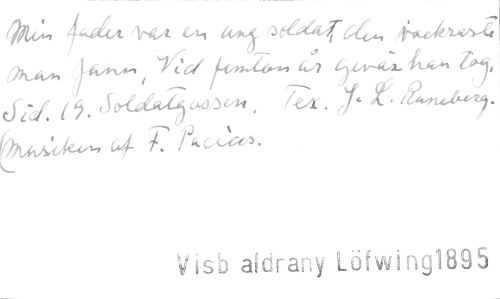 Min fader var en ung soldat, den vackraste
man fann, Vid femton år gevär han tog.
Sid. 19. Soldatgossen. Tex. J. L. Runeberg.
(Musiken af F. Pacius.
Visb aldrany Löfwing1895